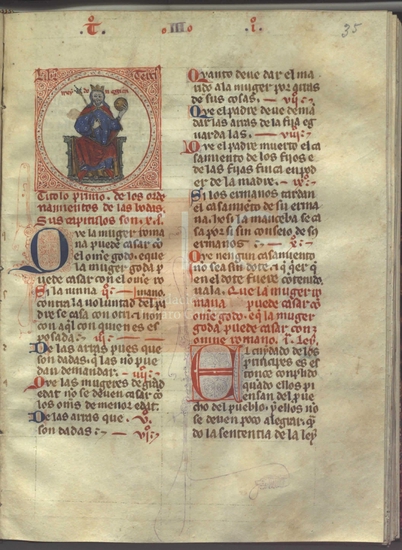 T III I
35
Libro Terci
Titolo primo. de los orde
namientos de las bodas
Sus capitolos son
Que la muger romana
na puede casar con
el ome godo. e que
la muger goda pu
ede casar con el ome ro
mano.
Si la ninna
contra la voluntad del pa
dre se casa con otri e non
con aquel con quien es es
posada. iii
De las arras pues que
son dadas. que las non pue
dan demandar. iiii
Que las mugeres de grand
edat no se deven casar con
los omes de menor edat.
De las arras que. v
son dadas. vi
Quanto deve dar el ma
rido a la muger por arras
de sus cosas. vii
Que el padre deve deman
dar las arras de la fija e g
uardalas. viii
Que el padre muerto el ca
samiento de los fijos e
de las fijas finca en pod
er de la madre. ix
Si los ermanos tardan
el casamiento de su erma
na. o si la manceba se ca
sa por si sin conseio de so
ermanos. x
Que nengun casamiento
no sea sin dote. e
en el dote fuere
nala. Que la muger ro
mana puede casar con
ome godo. e que la muger
goda puede casar con
ome romano. I Lei
El cuydado de los
principes es es
tonce complido
quando ellos pi
ensan del pue
cho del pueblo. y ellos no
se deven poco alegrar. quan
do la sentencia de la ley